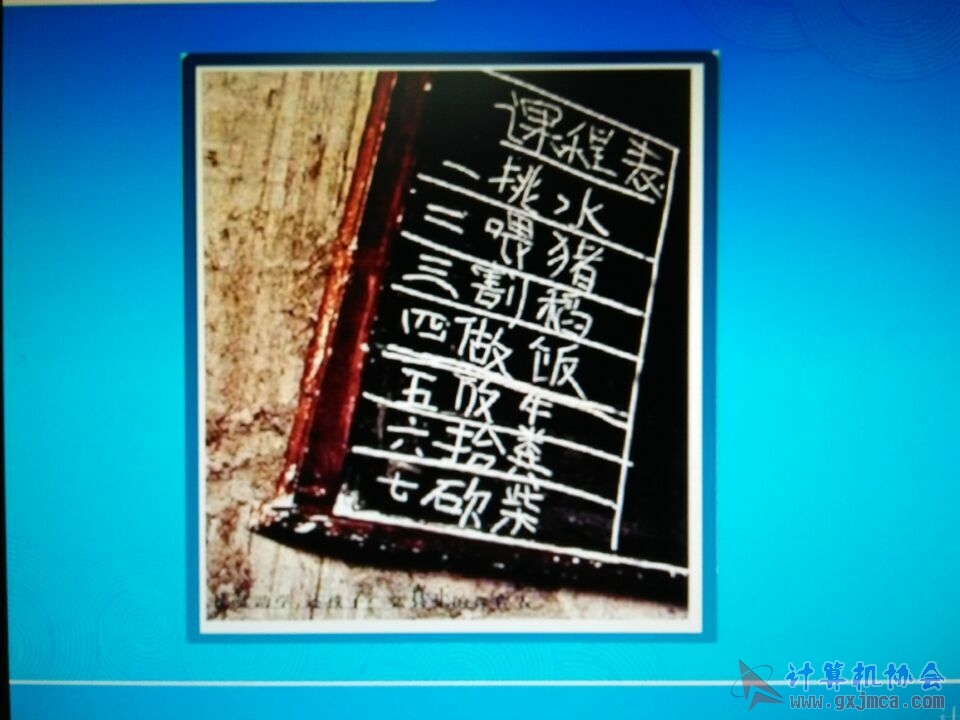 课程表
一挑水
二喂猪
三割稻
四做饭
五放牛
六拾粪
七砍柴
计算机协会
www.gxjmca.com